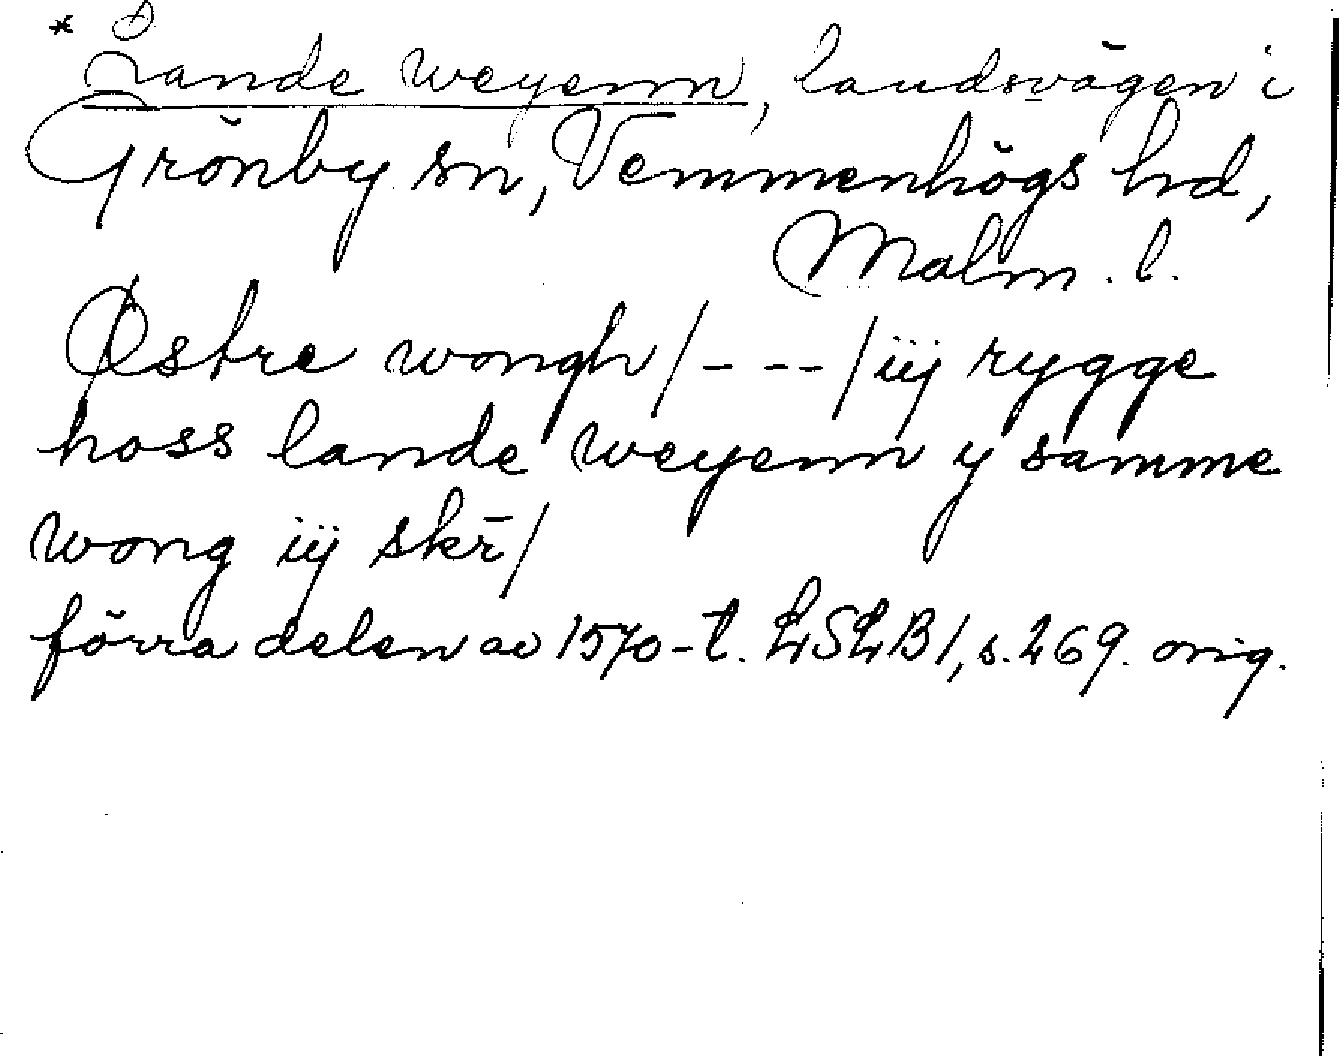 * Lande weyenn, landsvägen i
Grönby sn, Vemmenhögs hd,
Malm. l.
Østre wongh / - - - / iij rygge
hoss lande weyenn y samme
wong iij skr̄ /
förra delen av 1570-t. LSLB 1, s. 269. orig.